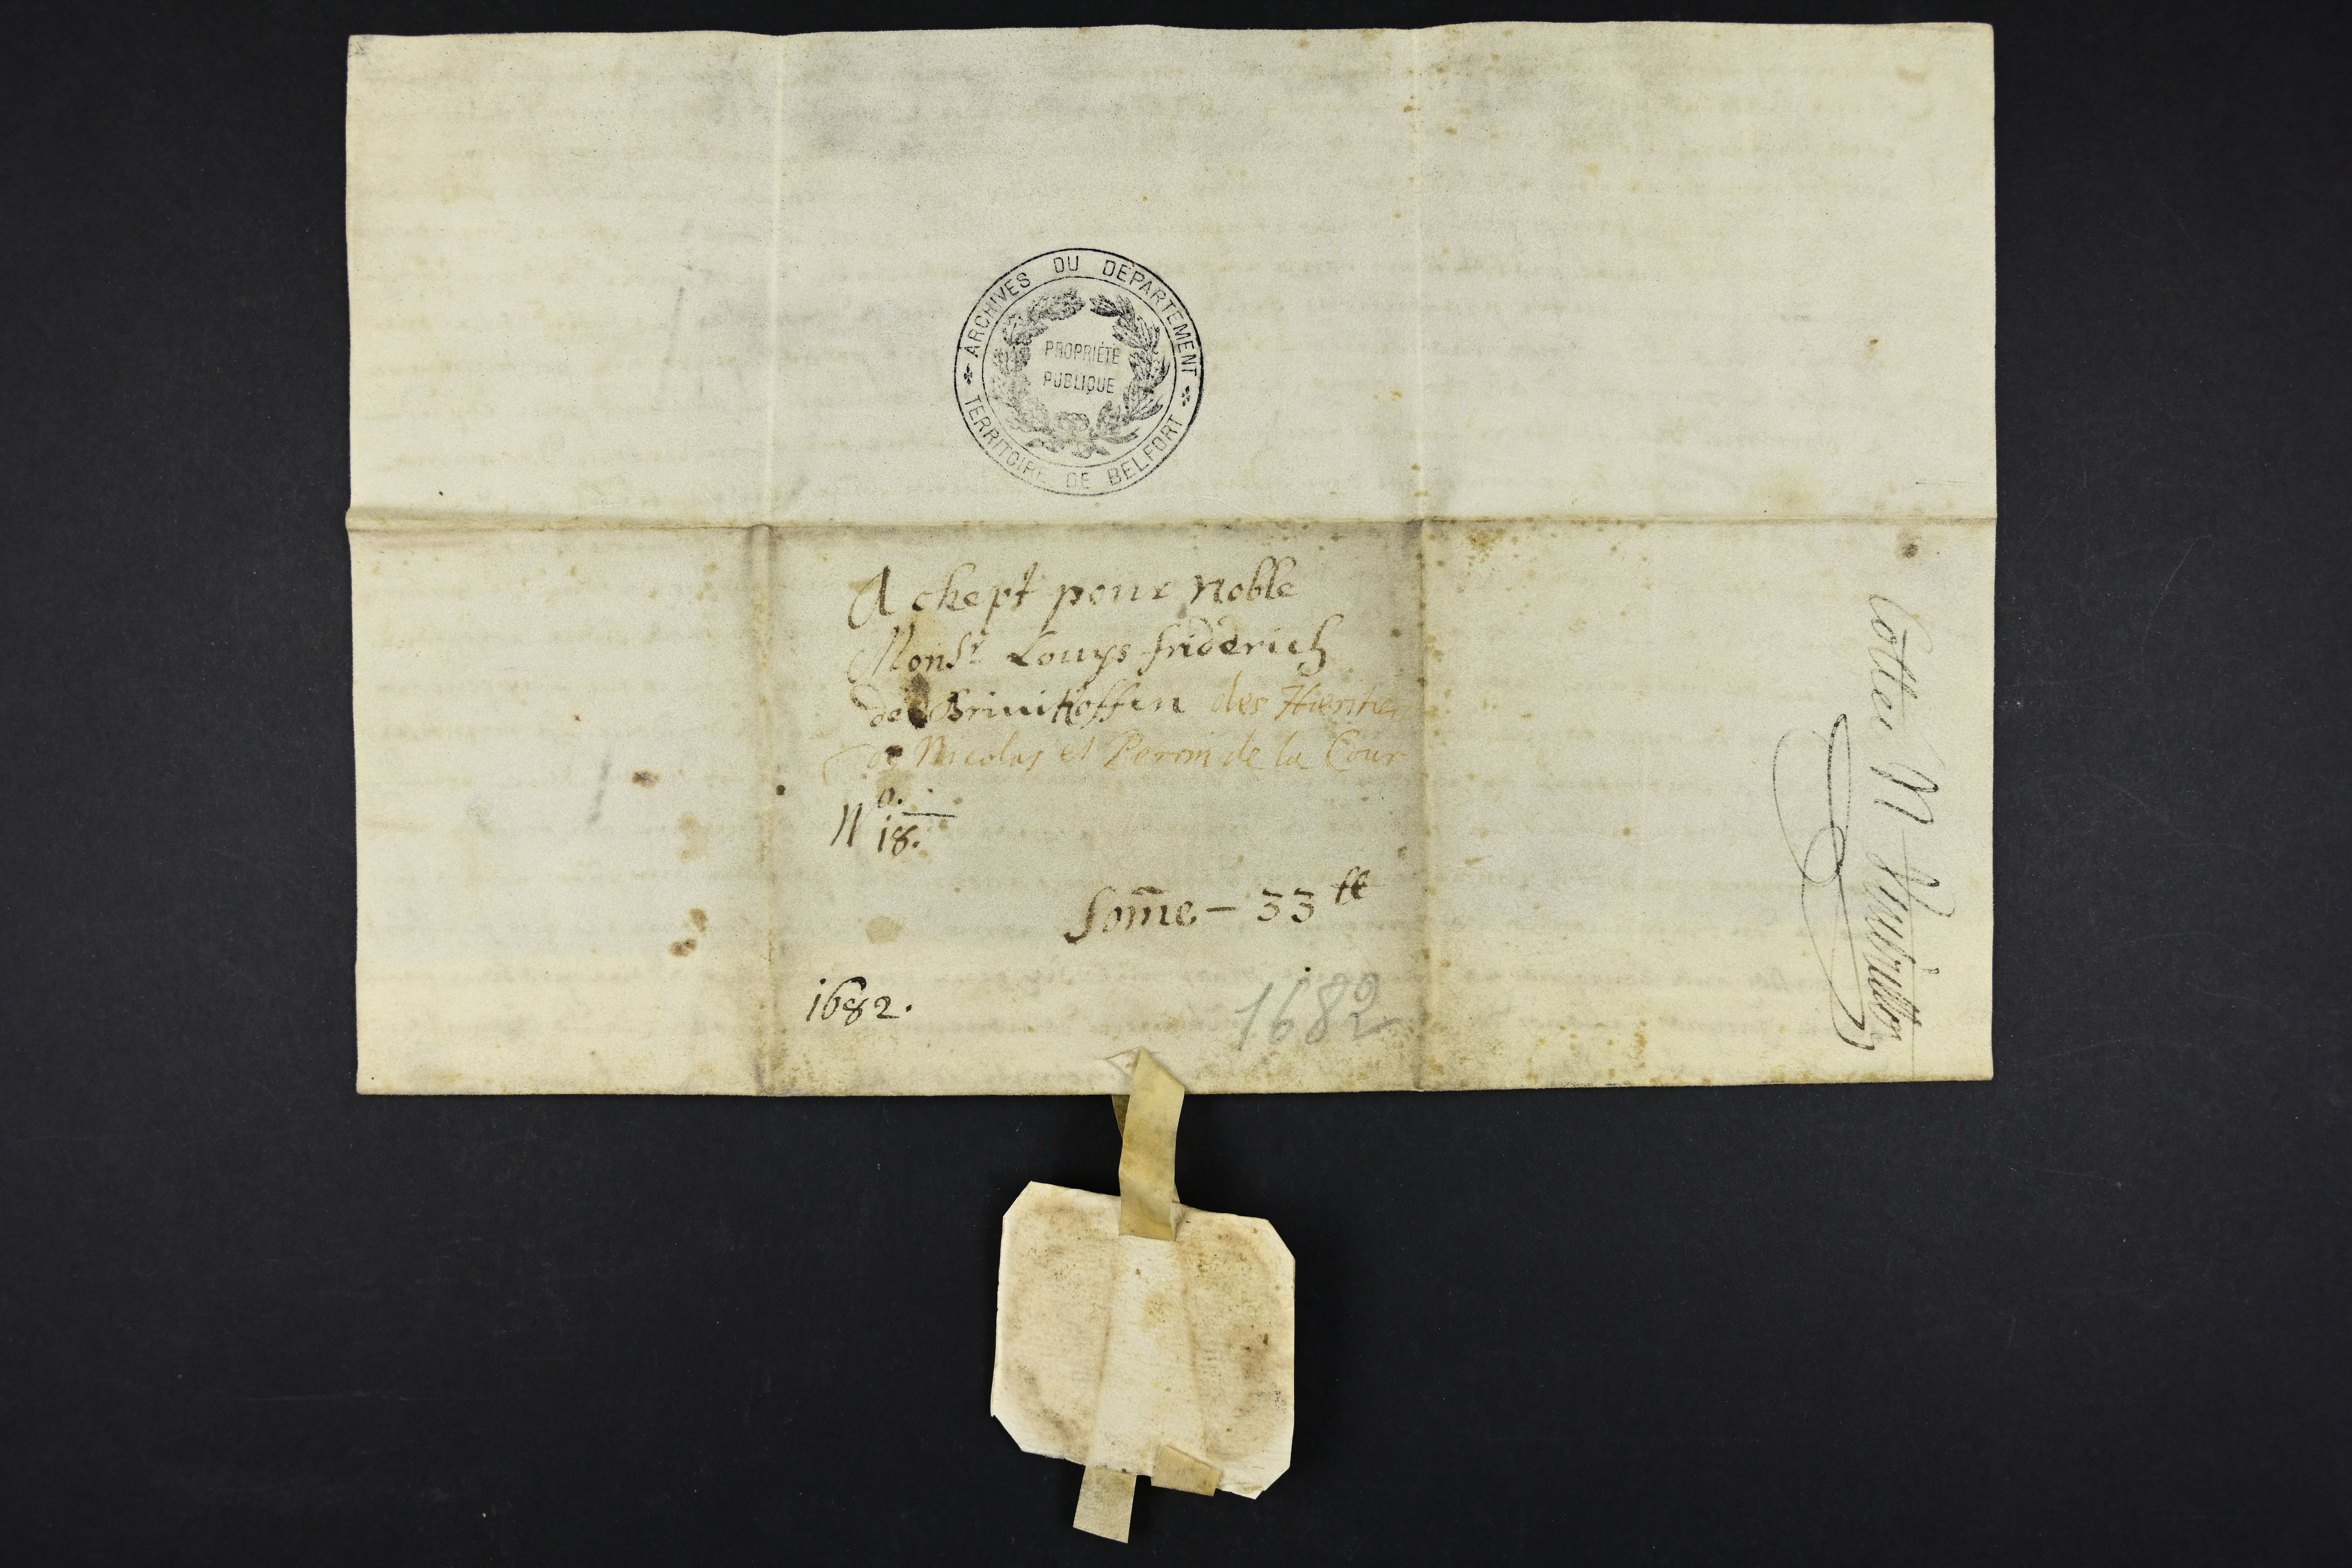 ARCHIVES DU DÉPARTEMENT
TERRITOIRE DE BELFORT
PROPRIÉTÉ
PUBLIQUE
Achept pour Noble
Monsr Louys friderich
de Brinikoffen des Hieritier
de Nicolas et Peroin de la Cour
No. 18.
som̄e - 33 ll
1682.
1682
Cotter N